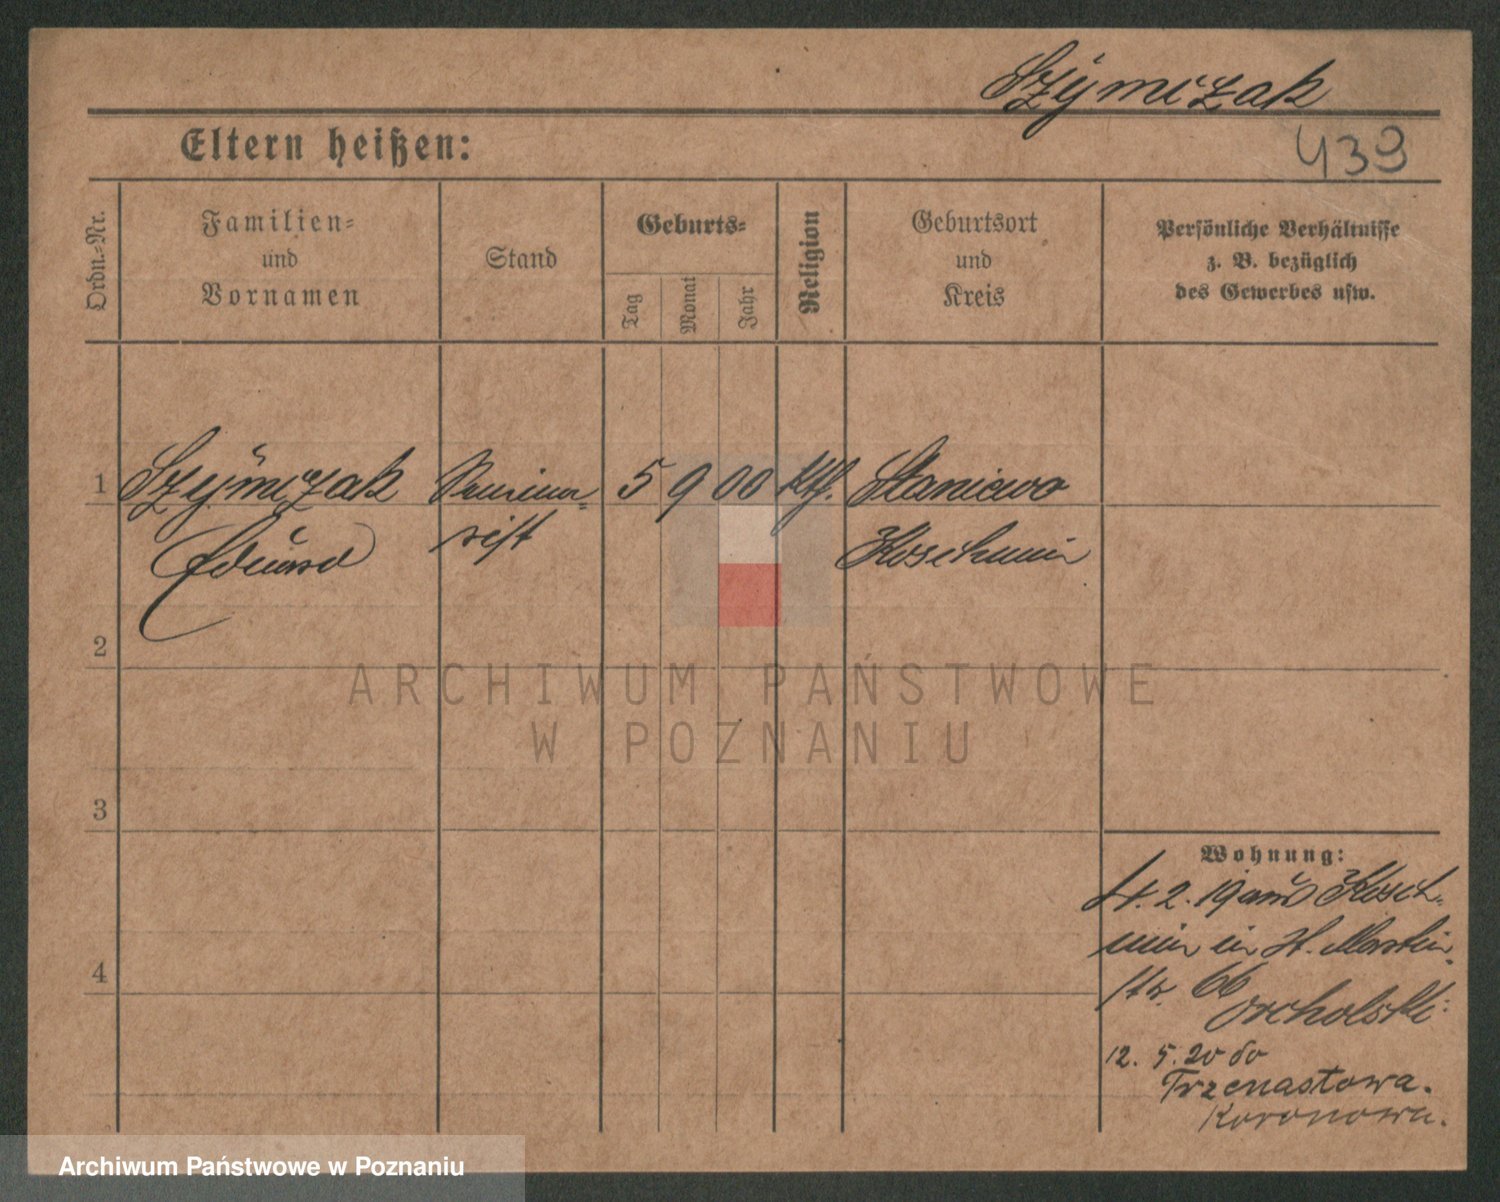 Szymczak
Eltern heißen:
439
Ordn.=Nr.
Familien=
und
Vornamen
Stand
Geburts=
Tag
Monat
Jahr
Religion
Geburtsort
und
Kreis
Persönliche Verhältnisse
z. B. bezüglich
des Gewerbes usw.
1 Szymczak Seminar= 5 9 00 Kth. Staniewo
Eduard rist Koschmin
2
3
4
Wohnung:
4. 2. 19 aus Kosch=
min in St. Martin
str. 66
Orcholski
12. 5. 20 do
Trzenastowa.
Koronowu.
ARCHIWUM PAŃSTWOWE
W POZNANIU
Archiwum Państwowe w Poznaniu